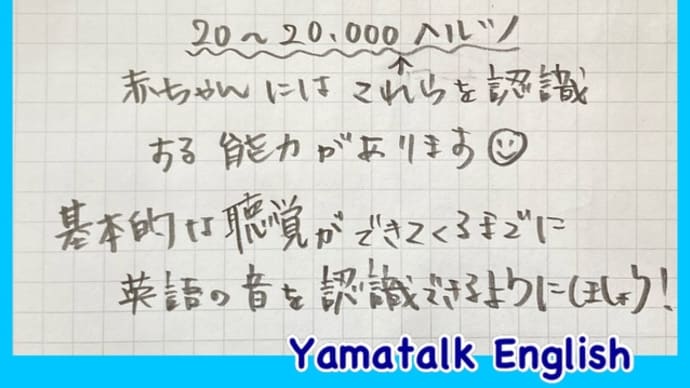 20～20.000ヘルツ
↑
赤ちゃんにはこれらを認識
する能力があります☺
基本的な聴覚ができてくるまでに
英語の音を認識できるようにしましょう!
Yamatalk English